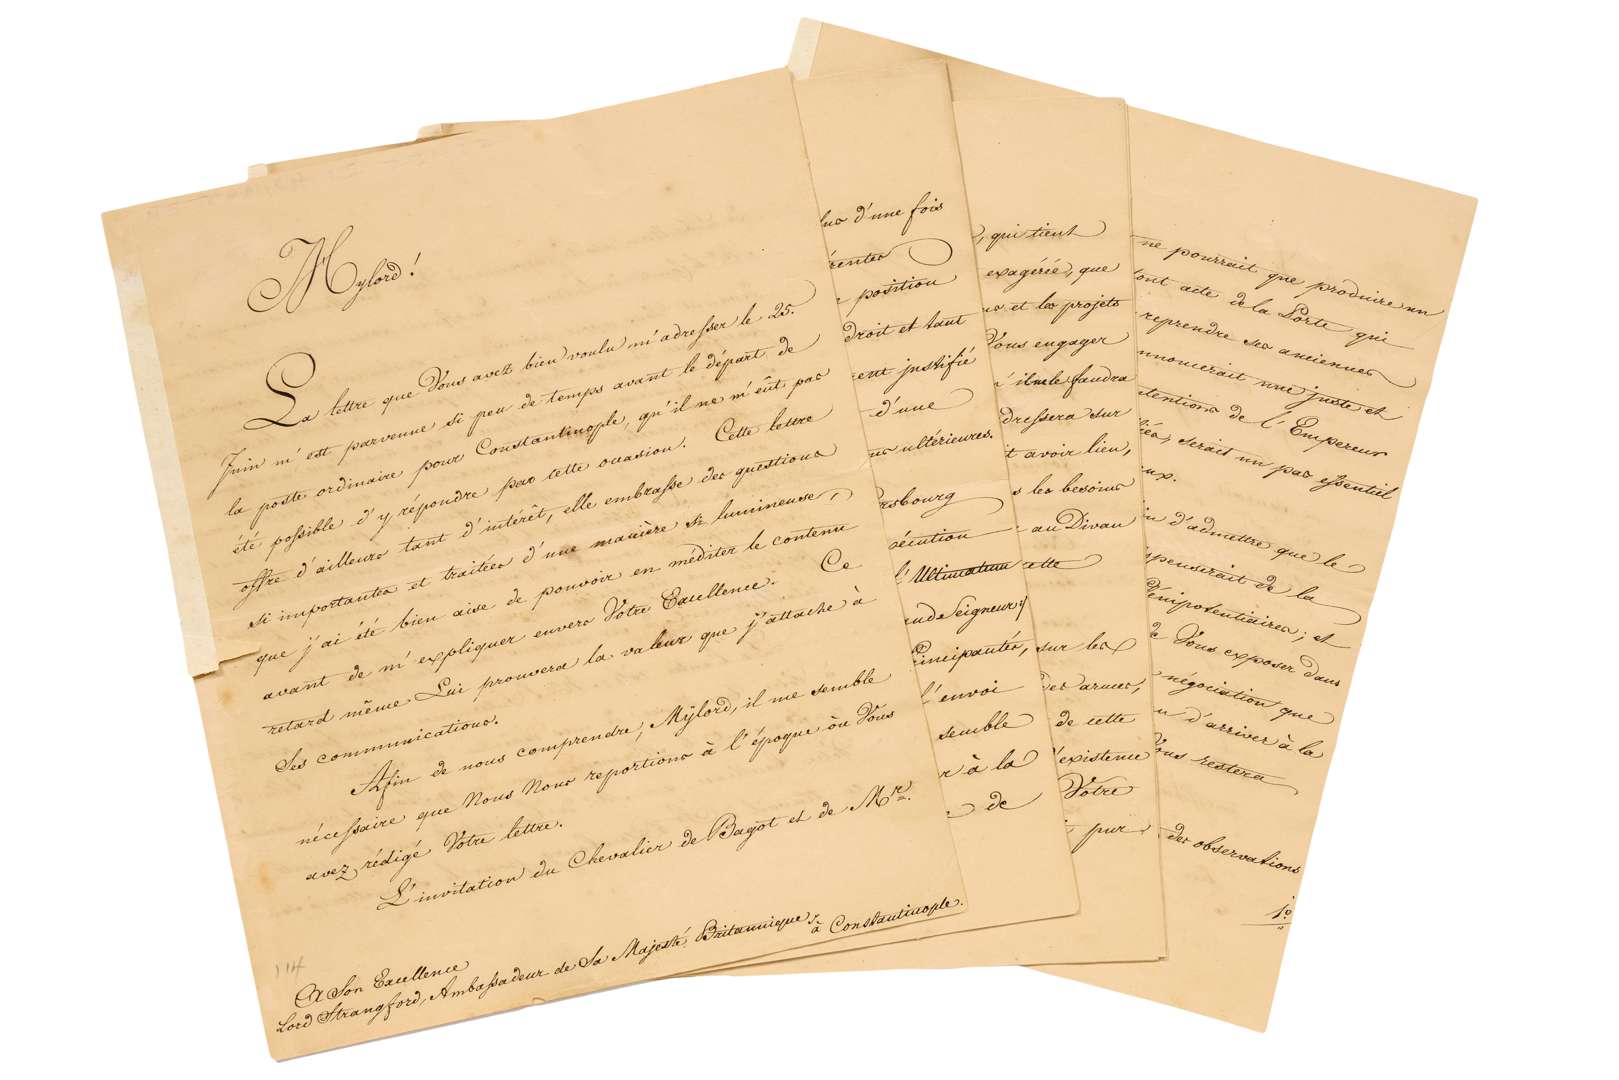 Mylord!
La lettre que Vous avez bien voulu m'adresser le 25.
Juin m'est parvenue si peu de temps avant le départ de
la poste ordinaire pour Constantinople, qu'il ne m'eût pas
été possible d'y répondre par cette occasion. Cette lettre
offre d'ailleurs tant d'intérêt, elle embrasse des questions
si importantes et traitées d'une manière si lumineuse,
que j'ai été bien aise de pouvoir en méditer le contenu
avant de m'expliquer envers Votre Excellence. Ce
retard même Lui prouvera la valeur que j'attache à
Ses communications.
Afin de nous comprendre, Mylord, il me semble
nécessaire que Nous Nous reportions à l'époque où Vous
avez rédigé Votre lettre.
L'invitation du Chevalier de Bagot et de Mr.
A Son Excellence
Lord Strangford, Ambassadeur de Sa Majesté Britannique à Constantinople.
114
d'une fois
position
droit et tant
justifié
d'une
ultérieures.
l'Ultimatum cette
and Seigneur:/
l'envoi
semble
à la
de
, qui tient
exagérée, que
et les projets
Vous engager
il me le faudra
dressera sur
avoir lieu,
les besoins
au Divan
sur les
des armes,
de cette
existence
Votre
pur
ne pourrait que produire un
acte de la Porte qui
reprendre ses anciennes
annoncerait une juste et
de l'Empereur
serait un pas essentiel
d'admettre que le
de la
Plénipotentiaires; et
Vous exposer dans
négociation que
d'arriver à la
Vous restera
des observations
1o